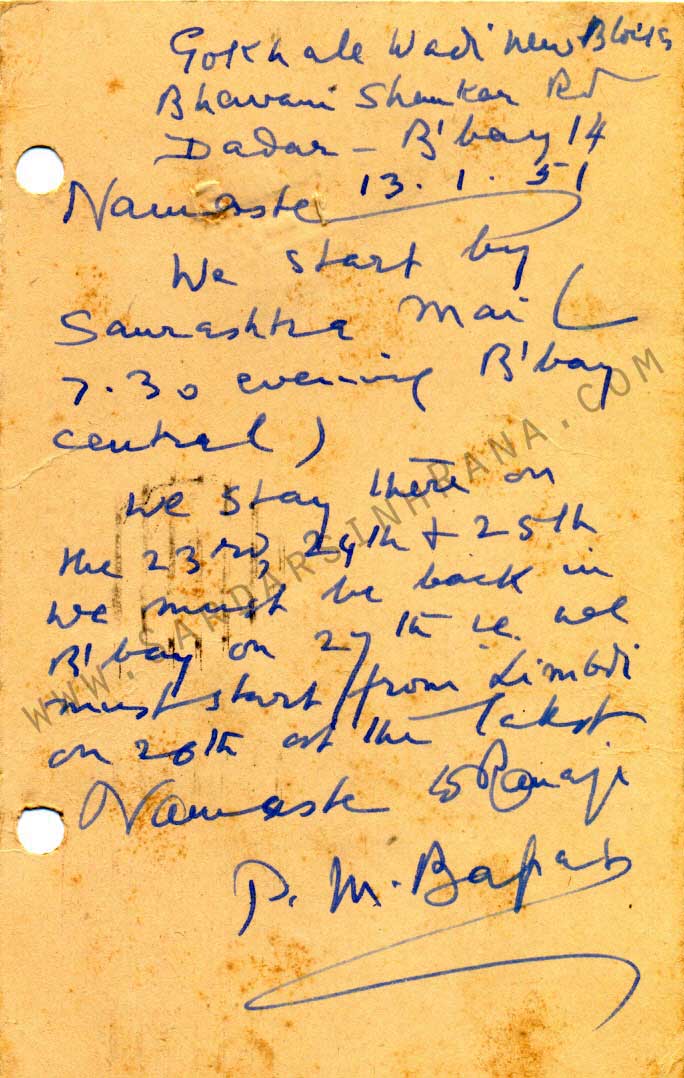 Gokhale Wadi New Blocks
Bhavani Shankar Rd
Dadar - B'bay 14
Namaste 13.1.51
We start by
Saurashtra Mail (
7.30 evening B'bay
central)
we stay there on
the 23rd, 24th + 25th
we must be back in
B'bay on 27th i.e. we
must start from Limbdi
on 26th at the latest
Namaste to Ranaji
P. M. Bapat
WWW.SARDARSINHRANA.COM